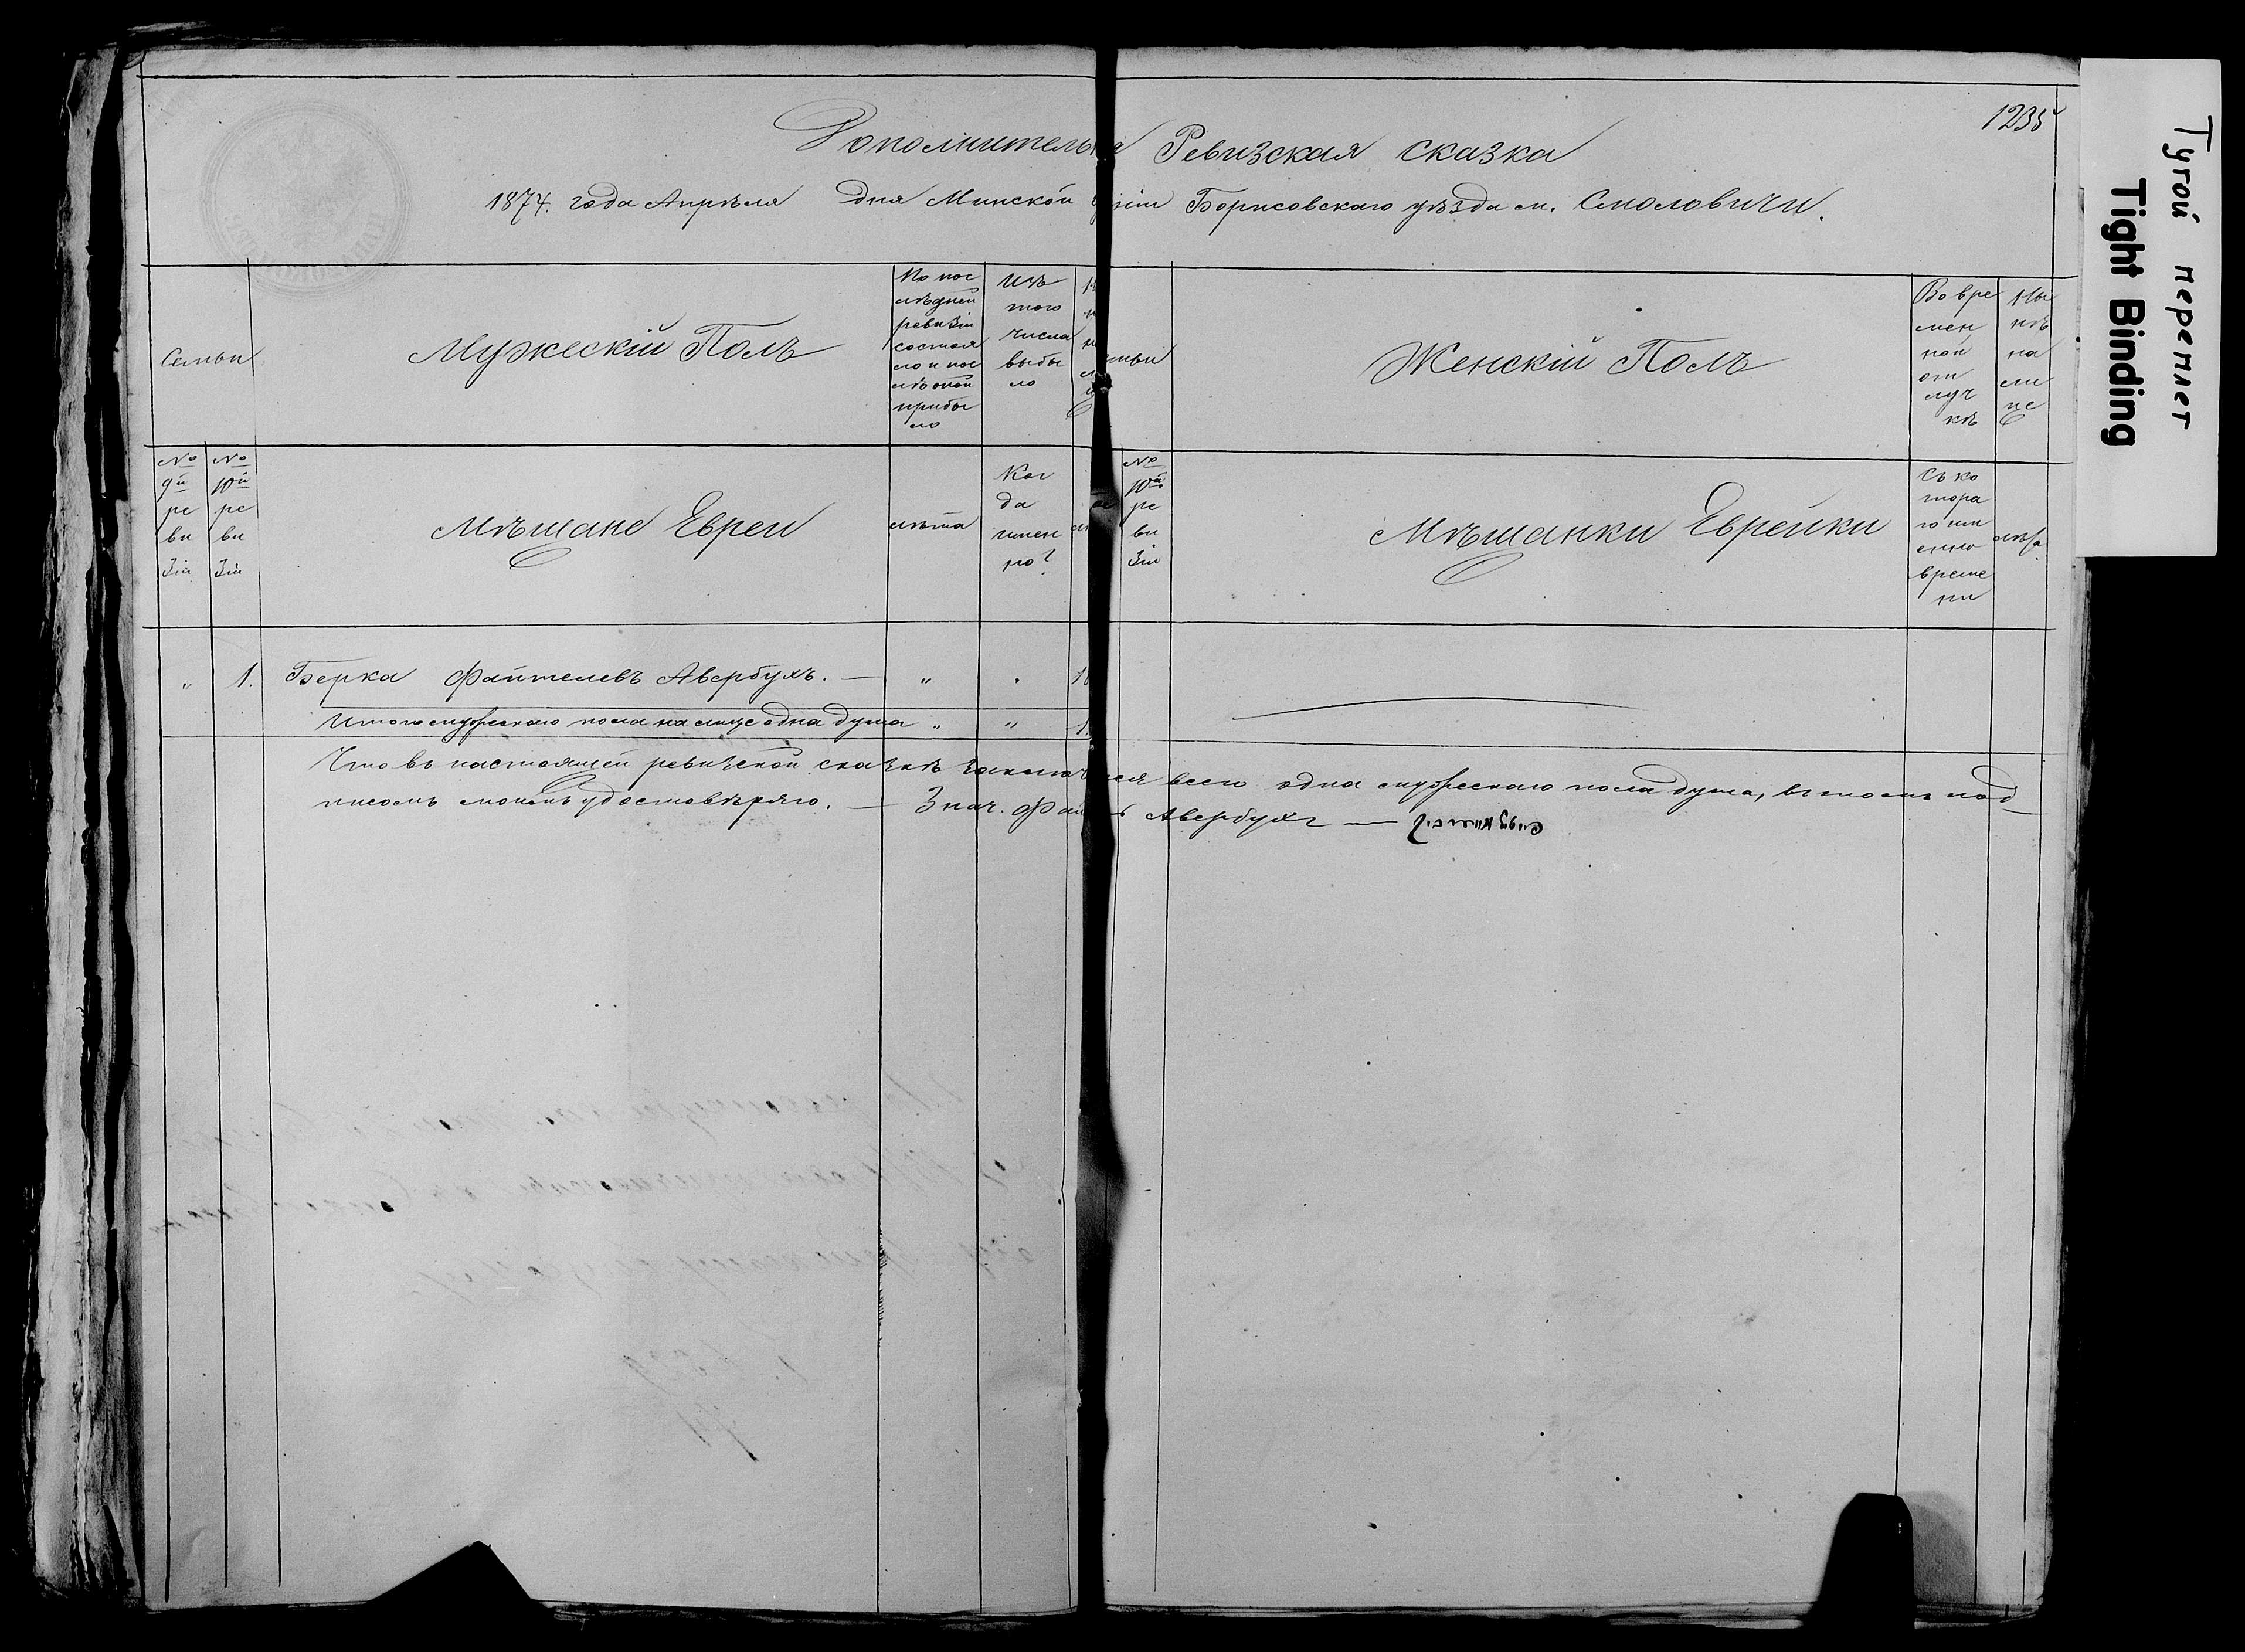 1235
Дополнительная Ревизская сказка
1874. года Апрѣля дня Минской губерніи Борисовскаго уѣзда м. Смоловичи.
Семьи
Мужескій Полъ
По послѣдней ревизіи состояло и послѣ оной прибыло
Изъ того числа выбыло
Женскій Полъ
Во временной отлучкѣ
Нынѣ на лице
№ 9й ревизіи
№ 10й ревизіи
Мѣщане Евреи
лѣта
Когда именно?
№ 10й ревизіи
Мѣщанки Еврейки
Съ котораго именно времени
лѣта
" 1. Берка Файтелевъ Авербухъ. — "
Итого мужескаго пола на лице одна душа " " 1
Что въ настоящей ревизской сказкѣ заключается всего одна мужескаго пола душа, въ томъ под
писомъ моимъ удостовѣряю. — Знач. Фай Авербухъ —
Тугой переплет
Tight Binding